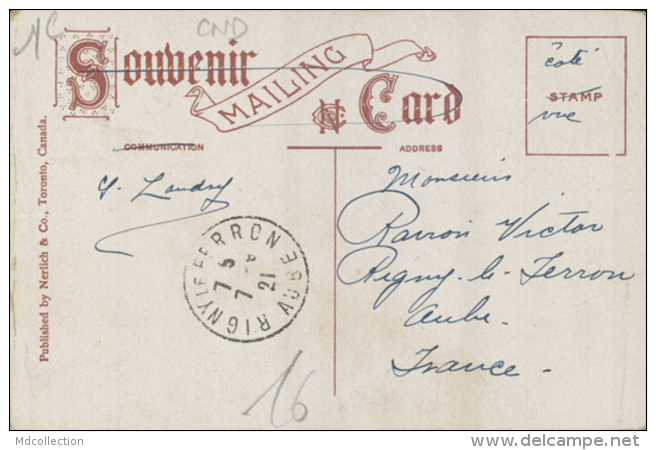 CND
Souvenir
MAILING
Card
côté
STAMP
vue
COMMUNICATION
ADDRESS
Published by Nerlich & Co., Toronto, Canada.
Y. Landry
Monsieur
Victor
Rigny-le-Ferron
Aube.
France.
RIGNY LE FERRON AUBE
7 5
7
21
16
Mdcollection
www.delcampe.net